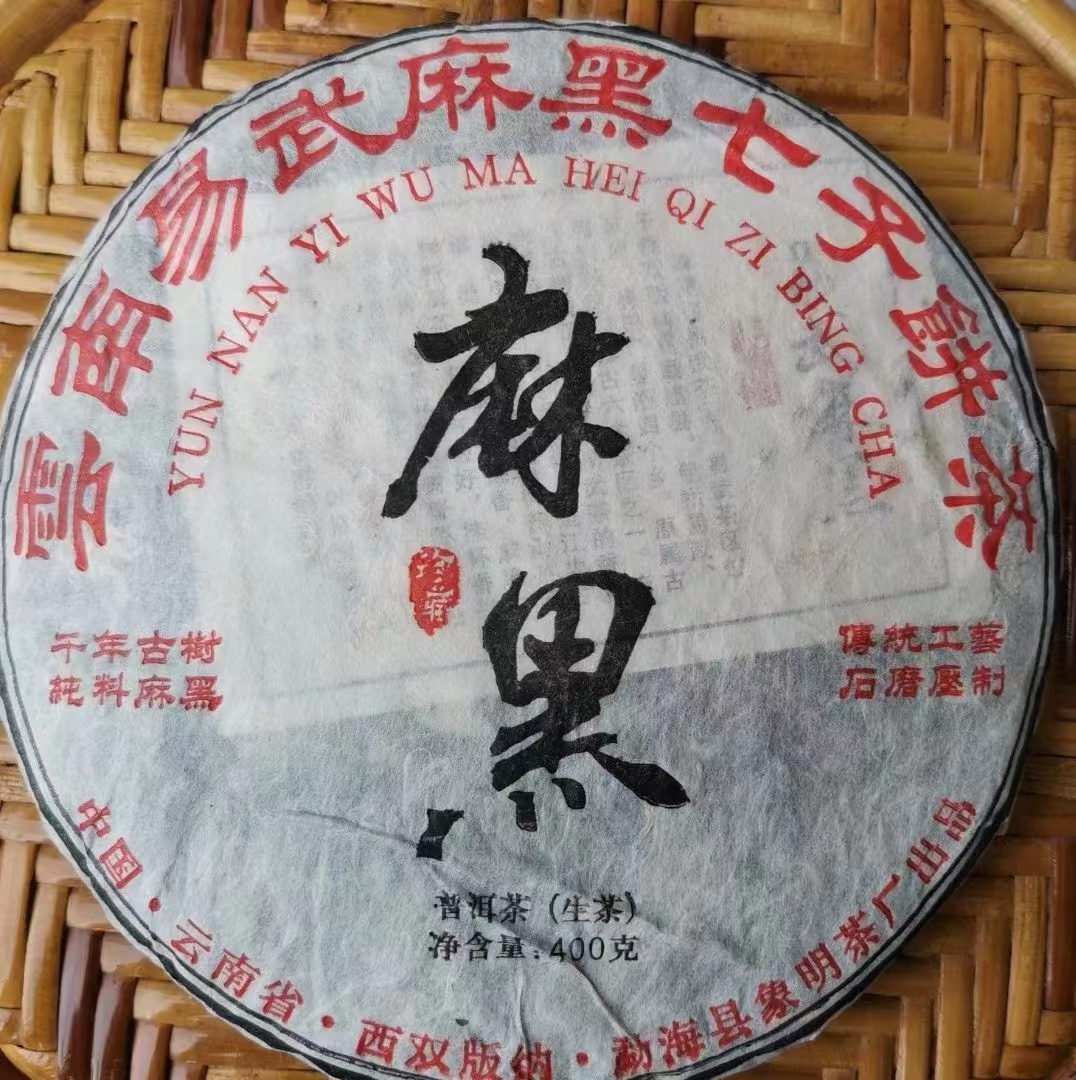 雲南易武麻黑七子餅茶
YUN NAN YI WU MA HEI QI ZI BING CHA
麻黑
珍藏
千年古樹
純料麻黑
傳統工藝
石磨壓制
普洱茶（生茶）
净含量:400克
中国·云南省·西双版纳·勐海县象明茶厂出品